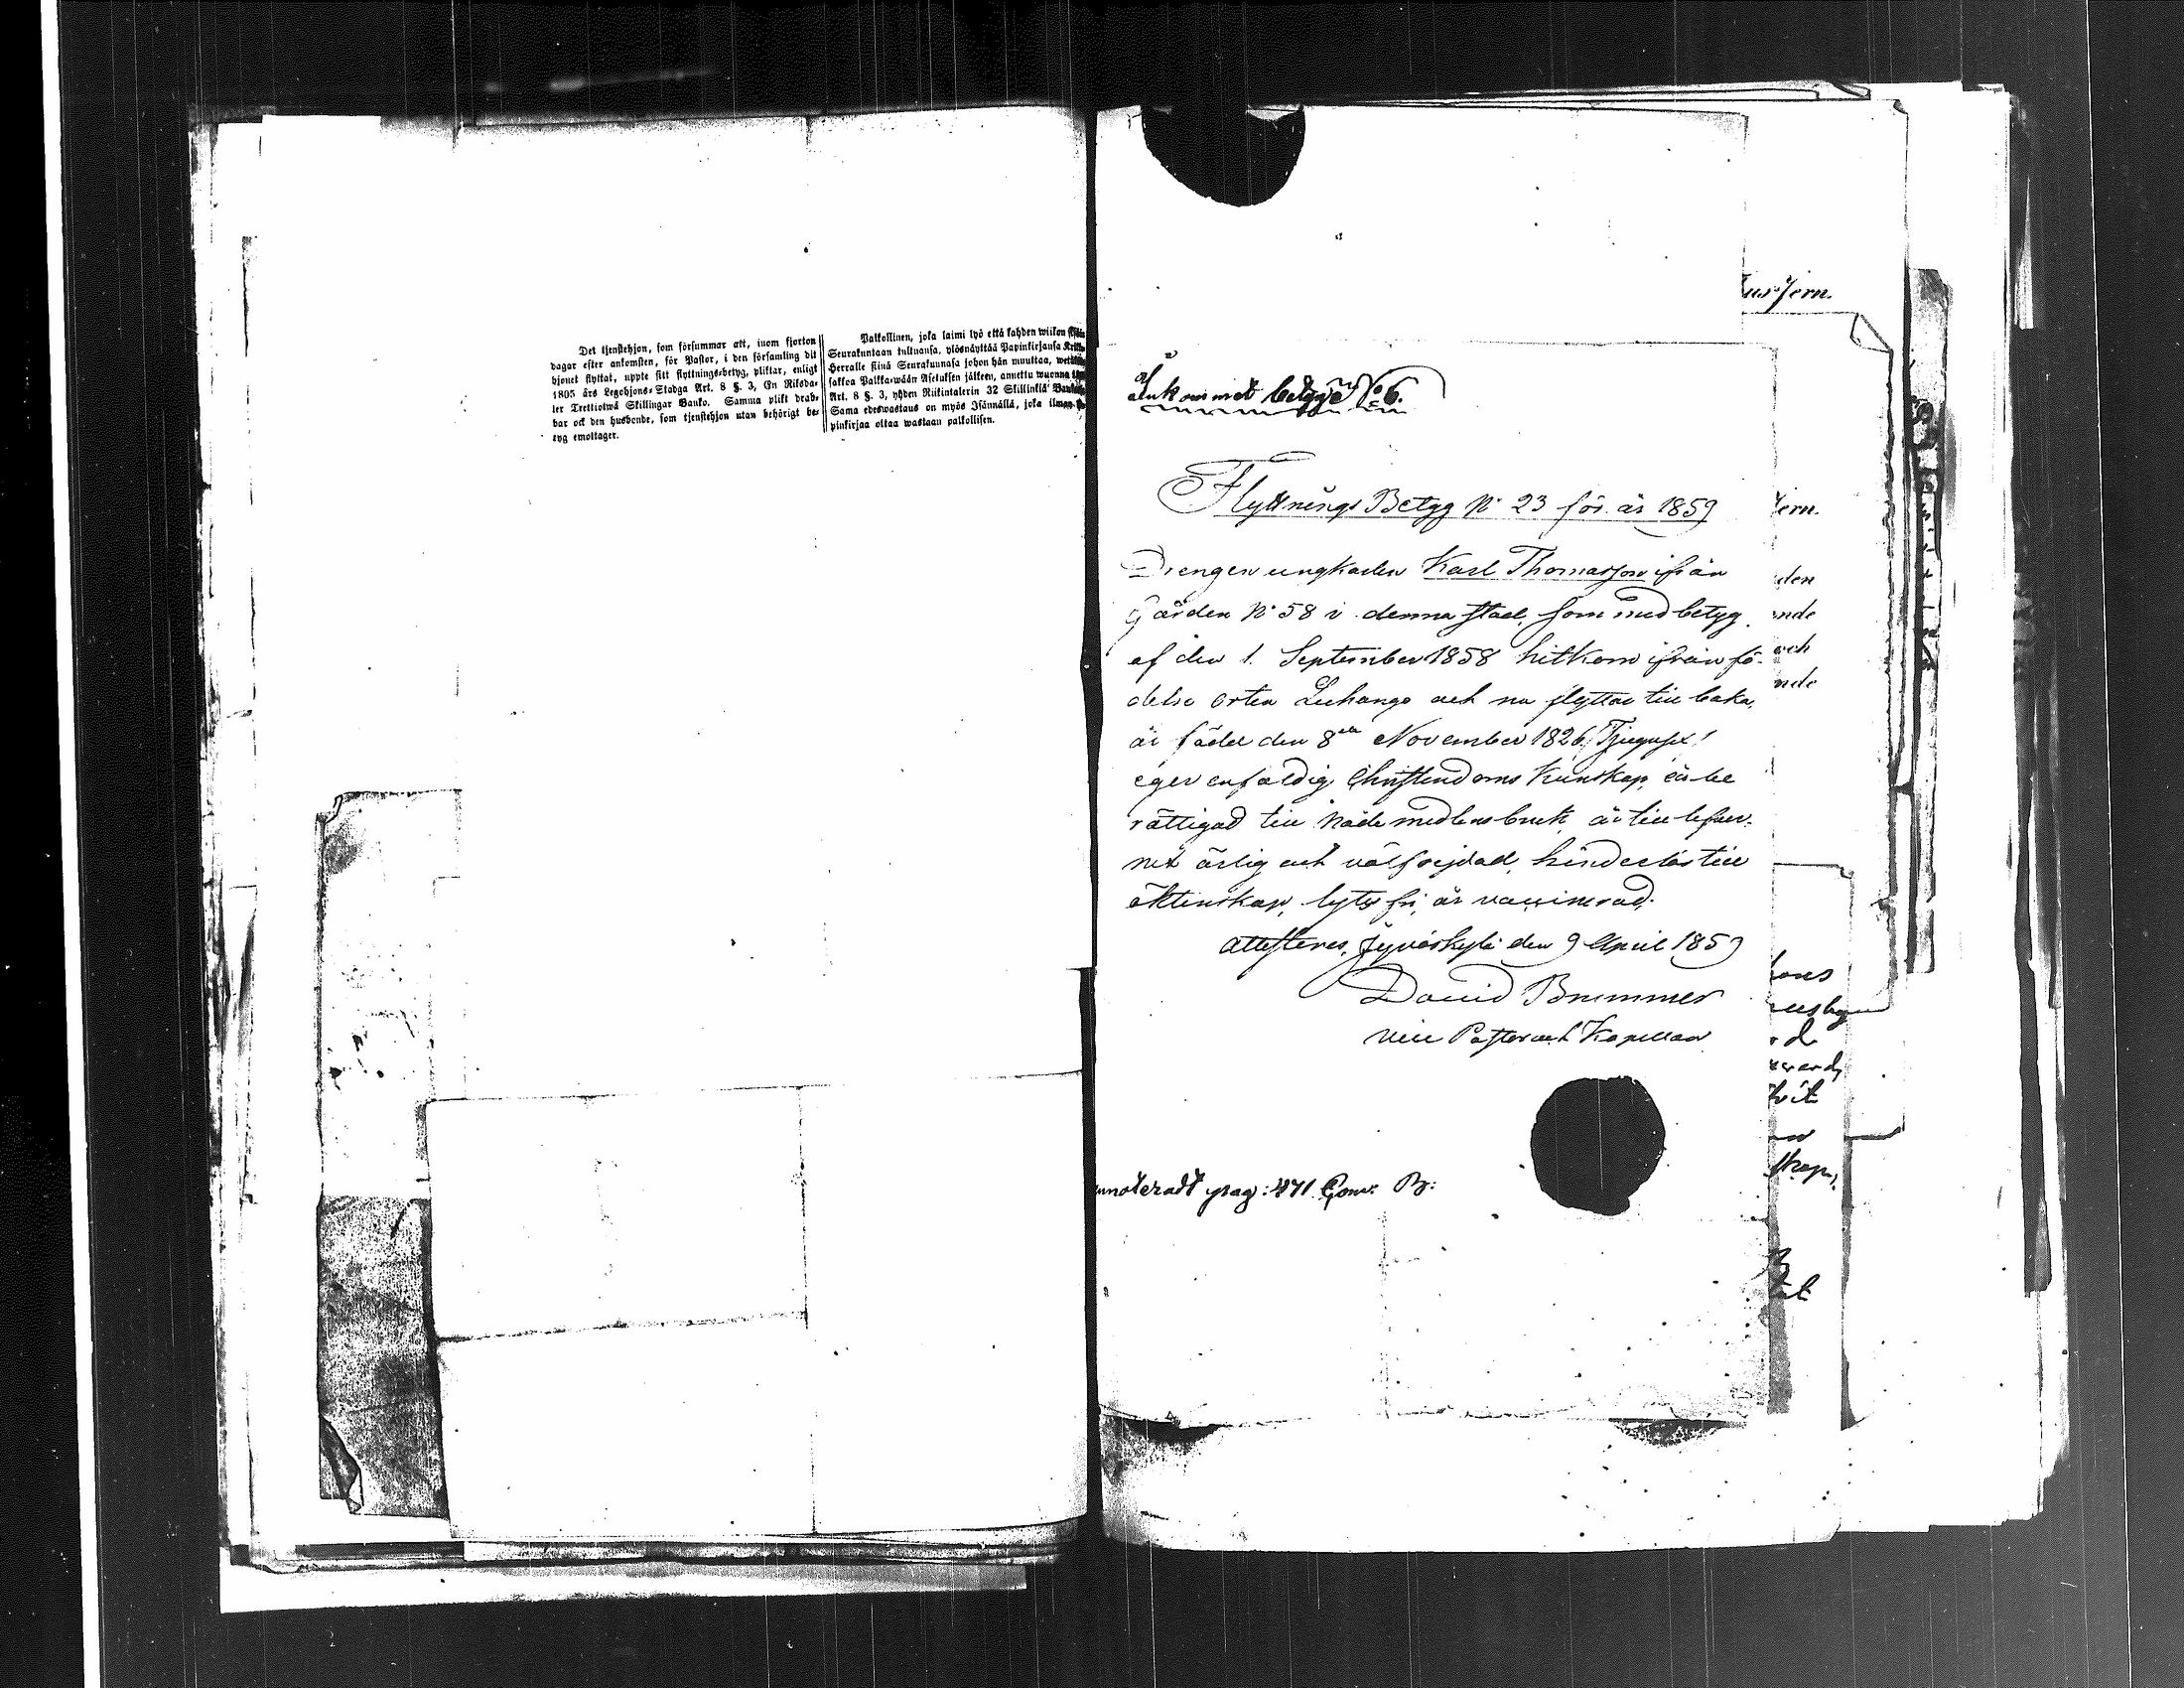 Det tjenstehjon, som försummar att, inom fjorton
dagar efter ankomsten, för Pastor, i den församling dit
hjonet flyttat, uppte sitt flyttnings-betyg, pliktar, enligt
1805 års Legohjons-Stadga Art. 8 §. 3, En Riksda-
ler Trettiotwå Skillingar Banko. Samma plikt drab-
bar ock den husbonde, som tjenstehjon utan behörigt be-
tyg emottager.
Palkollinen, joka laimi lyö että kahden wiikon
Seurakuntaan tultuansa, ylösnäyttää Papinkirjansa
Herralle siinä Seurakunnasa johon hän muuttaa,
sakkoa Palkka-wään Asetuksen jälkeen, annettu wuonna
Art. 8 §. 3, yhden Riikintalerin 32 Skillinkiä
Sama edeswastaus on myös Isännällä, joka ilman
pinkirjaa ottaa wastaan palkollisen.
Ankommet betyg No 6.
Flyttnings Betyg No 23 för år 1859
Drengen ungkarlen Karl Thomasson ifrån
Gården No 58 i denna stad, som med betyg
af den 1. September 1858 hitkom ifrån fö-
delse orten Luhango och nu flyttar till baka,
är född den 8de November 1826, Tjugusex!
eger enfaldig Christendoms kunskap, är be
rättigad till Nådemedlens bruk, är till lefver-
net ärlig och välfrejdad, hinderlös till
äktenskap, lytes fri, är vaccinerad.
attesteres, Jyväskylä den 9 April 1859
David Brummer
vice Pastor och Kapellan
annoteradt pag: 471 Com: B:
Jern.
Jern.
den
nde
och
nde